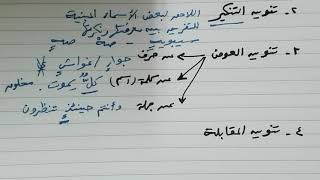 ٢ - تنوين التنكير اللاحق لبعض الأسماء المبنية
للتفريق بين معرفتها ونكرتها
سيبويهٍ - صهْ صهٍ
٣ - تنوين العوض عن حرف جوارٍ / غواشٍ
عن كلمة (اسم) كلٌّ يموت. مخلوق
عن جملة وأنتم حينئذٍ تنظرون
٤ - تنوين المقابلة